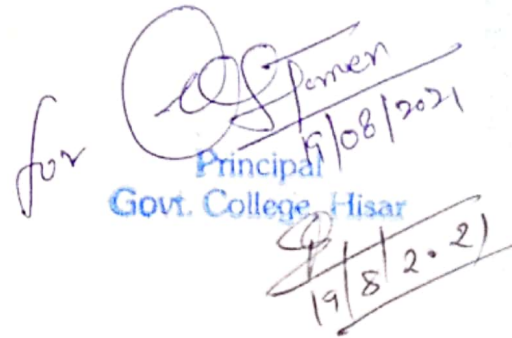 for
19/08/2021
Principal
Govt. College, Hisar
19/8/2021